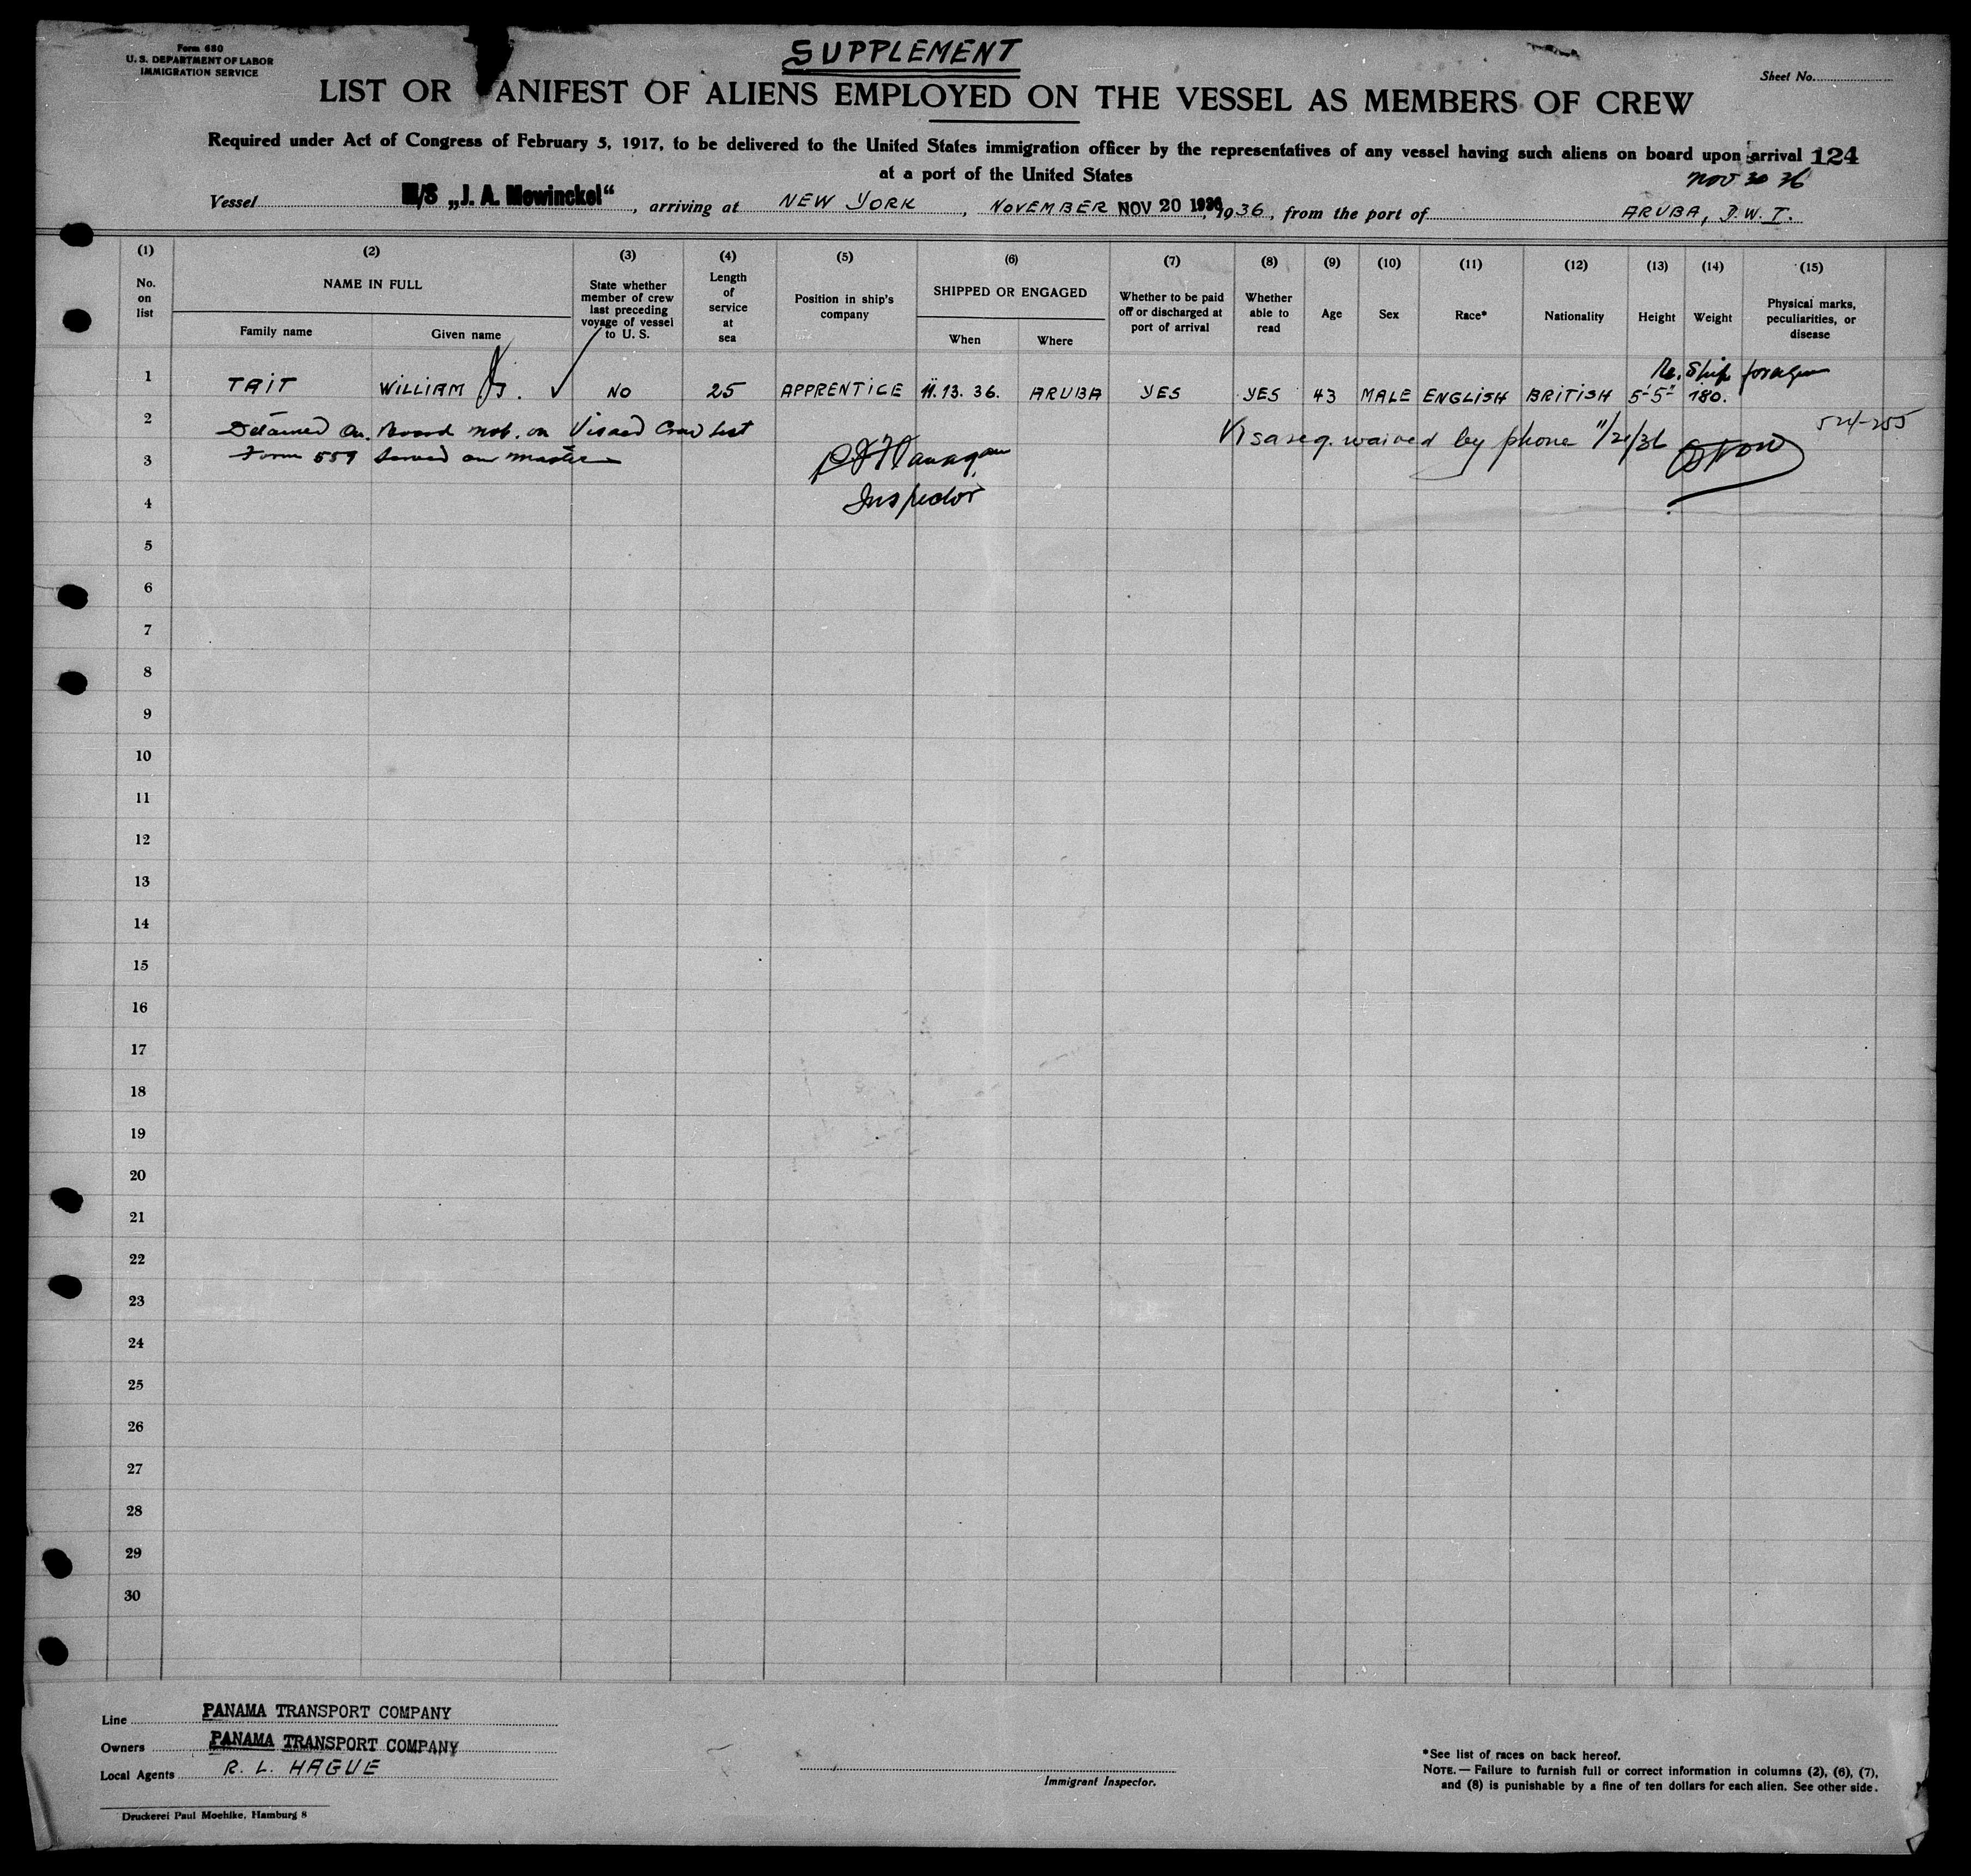 SUPPLEMENT
Form 680
U. S. DEPARTMENT OF LABOR
IMMIGRATION SERVICE
Sheet No.
LIST OR ANIFEST OF ALIENS EMPLOYED ON THE VESSEL AS MEMBERS OF CREW
Required under Act of Congress of February 5, 1917, to be delivered to the United States immigration officer by the representatives of any vessel having such aliens on board upon arrival 124
at a port of the United States
Nov 30 36
Vessel M/S „J. A. Mowinckel“, arriving at NEW YORK, NOVEMBER NOV 20 1936, 1936, from the port of ARUBA, D.W.I.
(1) (2) (3) (4) (5) (6) (7) (8) (9) (10) (11) (12) (13) (14) (15)
No. on list
NAME IN FULL
Family name Given name
State whether member of crew last preceding voyage of vessel to U. S.
Length of service at sea
Position in ship's company
SHIPPED OR ENGAGED
When Where
Whether to be paid off or discharged at port of arrival
Whether able to read
Age
Sex
Race*
Nationality
Height
Weight
Physical marks, peculiarities, or disease
Re. Ship foreign
1 TAIT WILLIAM J. NO 25 APPRENTICE 11.13.36. ARUBA YES YES 43 MALE ENGLISH BRITISH 5'-5" 180.
2 Detained On Board not on Visaed Crew List
Visa req. waived by phone 11/21/36
524-255
3 Form 559 Served on Master
4 Inspector
5
6
7
8
9
10
11
12
13
14
15
16
17
18
19
20
21
22
23
24
25
26
27
28
29
30
Line PANAMA TRANSPORT COMPANY
Owners PANAMA TRANSPORT COMPANY
Local Agents R. L. HAGUE
Immigrant Inspector.
*See list of races on back hereof.
NOTE.— Failure to furnish full or correct information in columns (2), (6), (7),
and (8) is punishable by a fine of ten dollars for each alien. See other side.
Druckerei Paul Moehlke, Hamburg 8